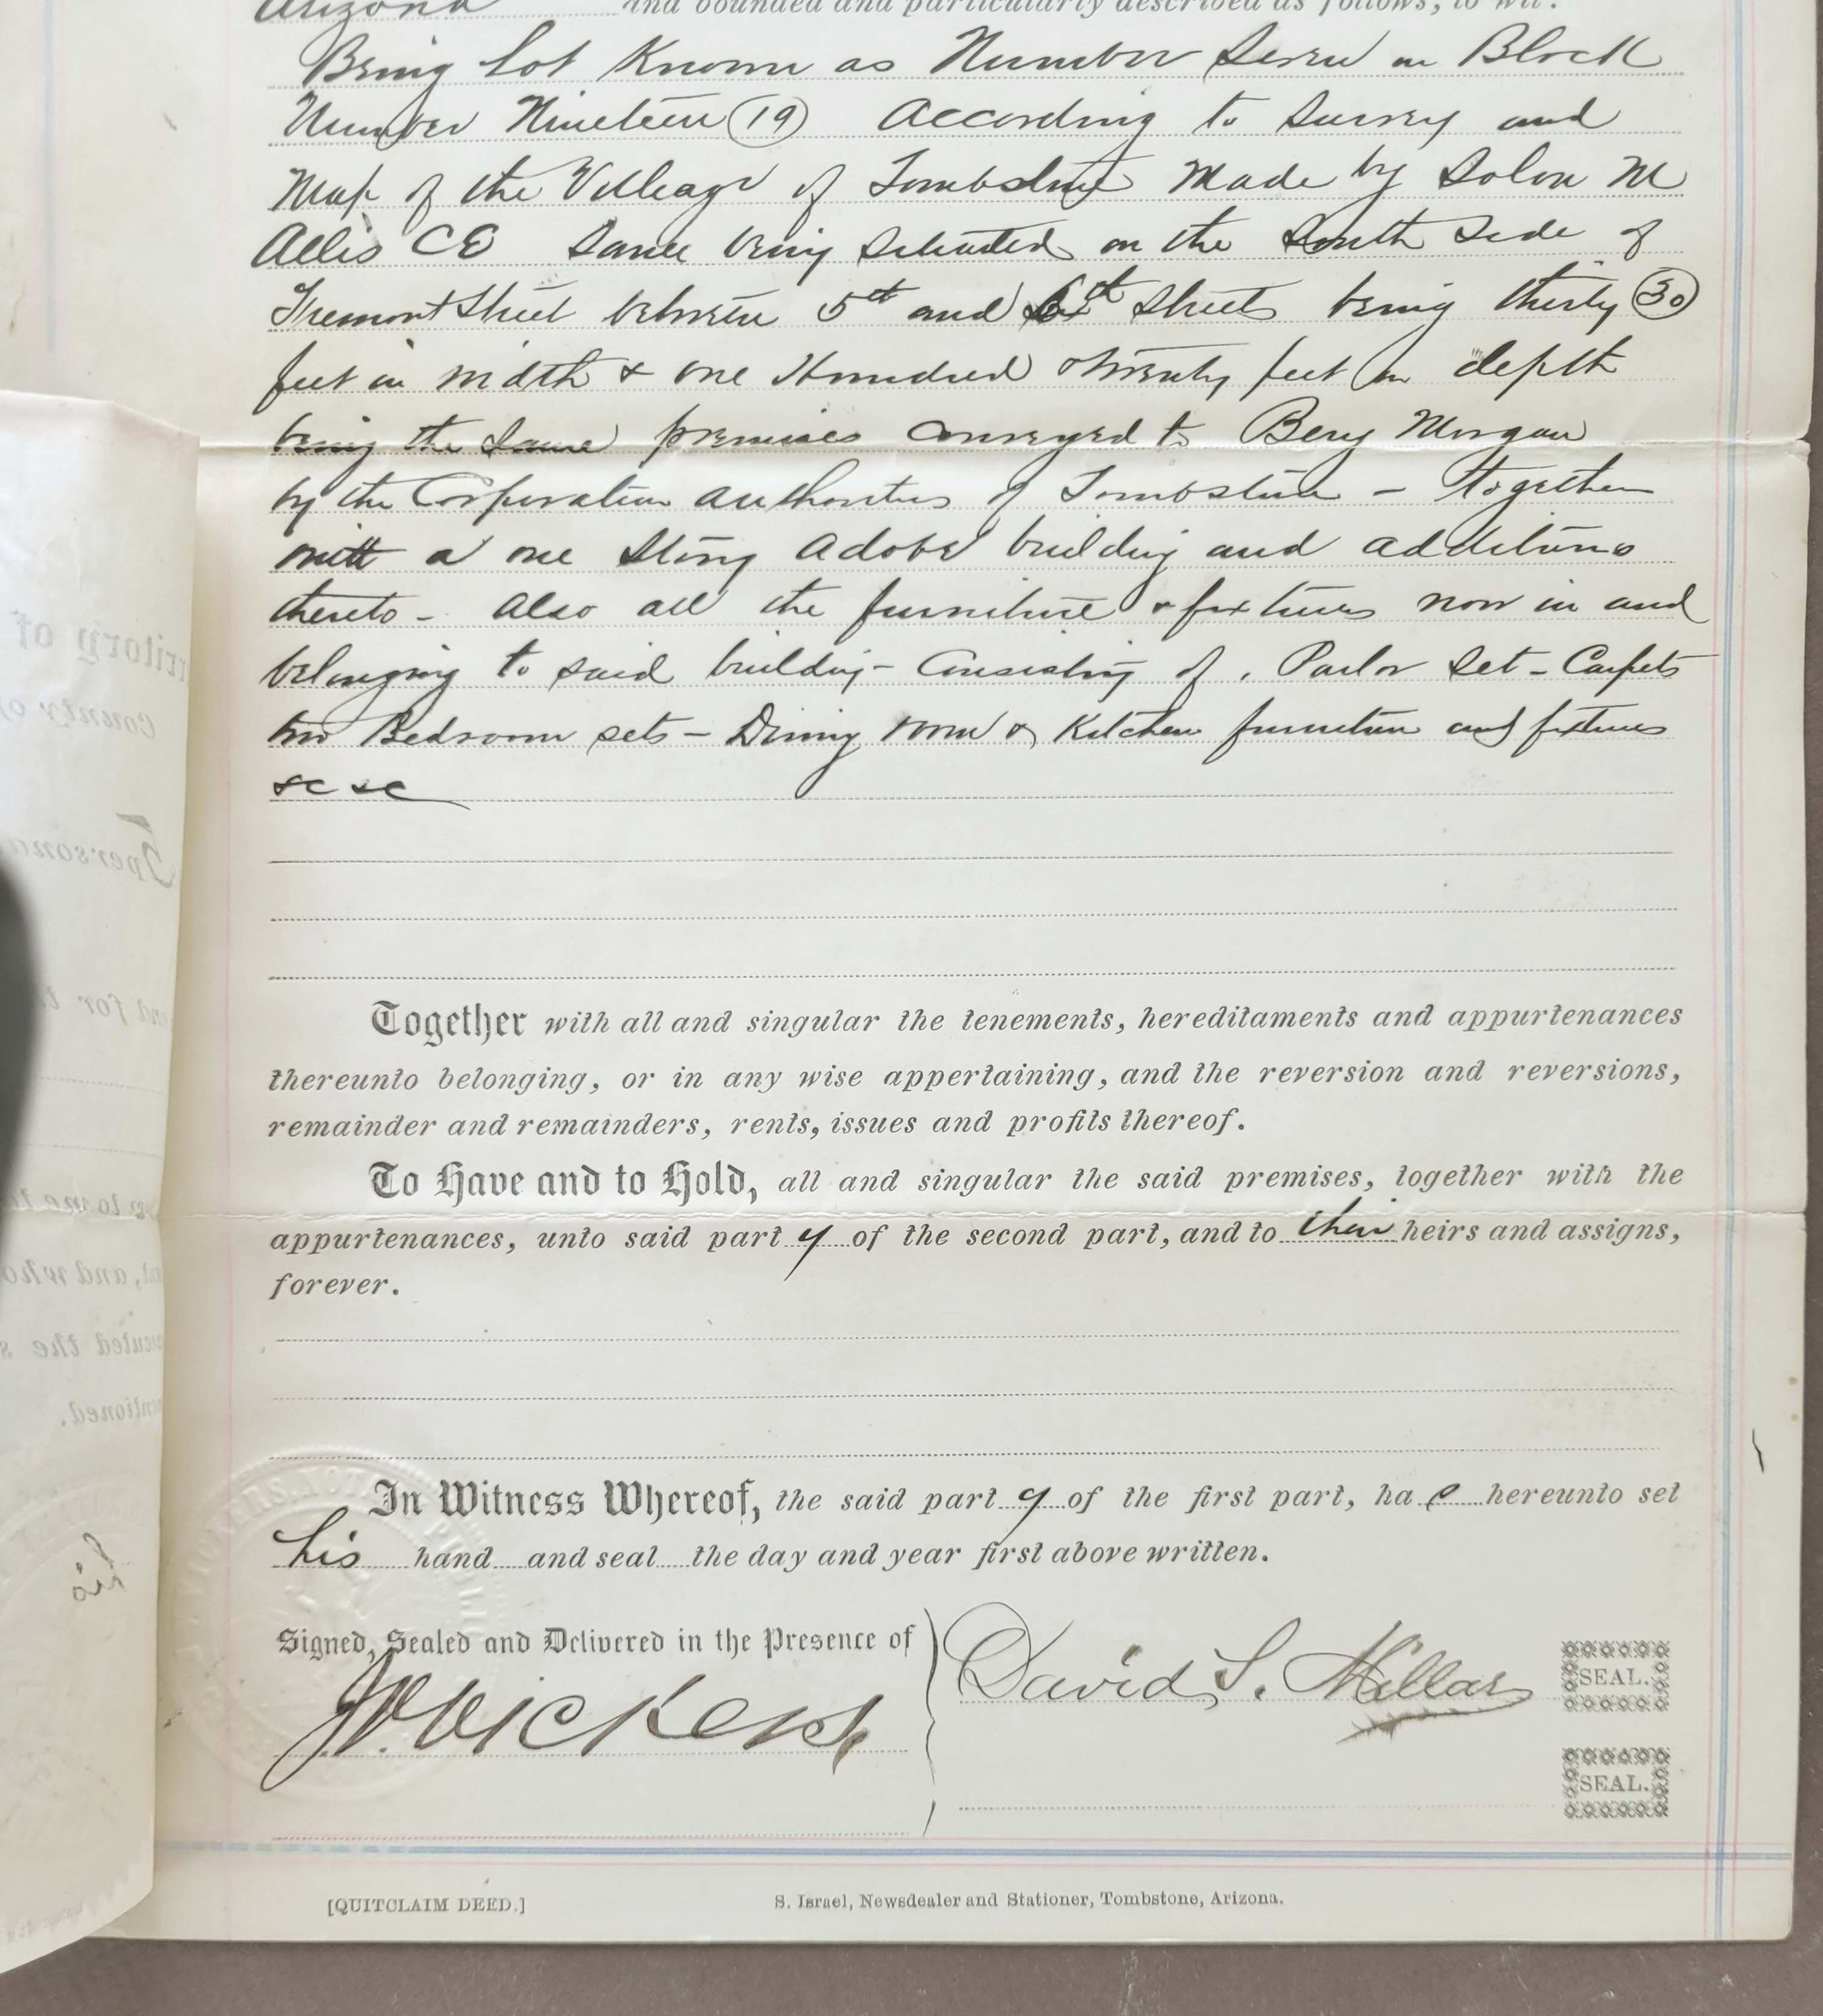 Arizona and bounded and particularly described as follows, to wit:
Being Lot Known as Number Seven in Block
Number Nineteen (19) According to Survey and
Map of the Village of Tombstone Made by Solon M
Allis CE Same being Situated on the South Side of
Fremont Street between 5th and 6th Streets being thirty (30)
feet in width & one Hundred & twenty feet in depth
being the Same premises Conveyed to Benj Morgan
by the Corporation Authorities of Tombstone - Together
with a one Story Adobe building and additions
thereto - Also all the furniture & fixtures now in and
belonging to said building - Consisting of , Parlor Set - Carpets
two Bedroom sets - Dining room & Kitchen furniture and fixtures
&c &c
Together with all and singular the tenements, hereditaments and appurtenances
thereunto belonging, or in any wise appertaining, and the reversion and reversions,
remainder and remainders, rents, issues and profits thereof.
To Have and to Hold, all and singular the said premises, together with the
appurtenances, unto said part y of the second part, and to their heirs and assigns,
forever.
In Witness Whereof, the said part y of the first part, ha s hereunto set
his hand and seal the day and year first above written.
Signed, Sealed and Delivered in the Presence of
J.V. Vickers
David S. Millar
SEAL.
SEAL.
[QUITCLAIM DEED.]
S. Israel, Newsdealer and Stationer, Tombstone, Arizona.